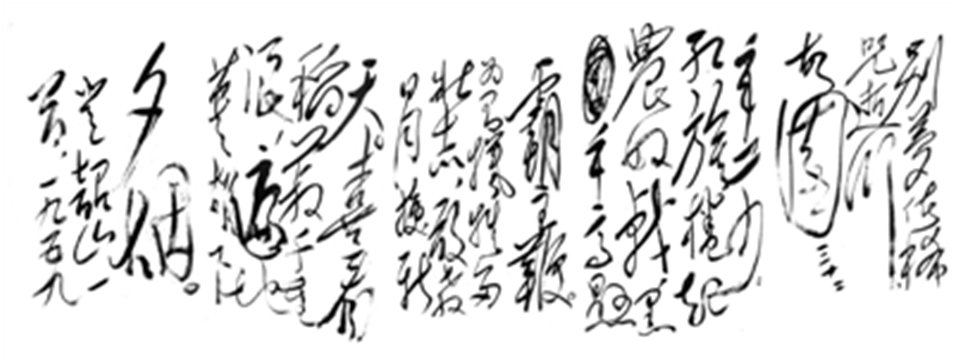 别梦依稀
咒逝川
故园三十二
年前
红旗捲起
農奴戟黑
手高悬
霸主鞭
为有犧牲多
壮志，敢教
日月换新
天。喜看
稻菽千重
浪，遍地
英雄下
夕烟。
登韶山一
首．一九五九